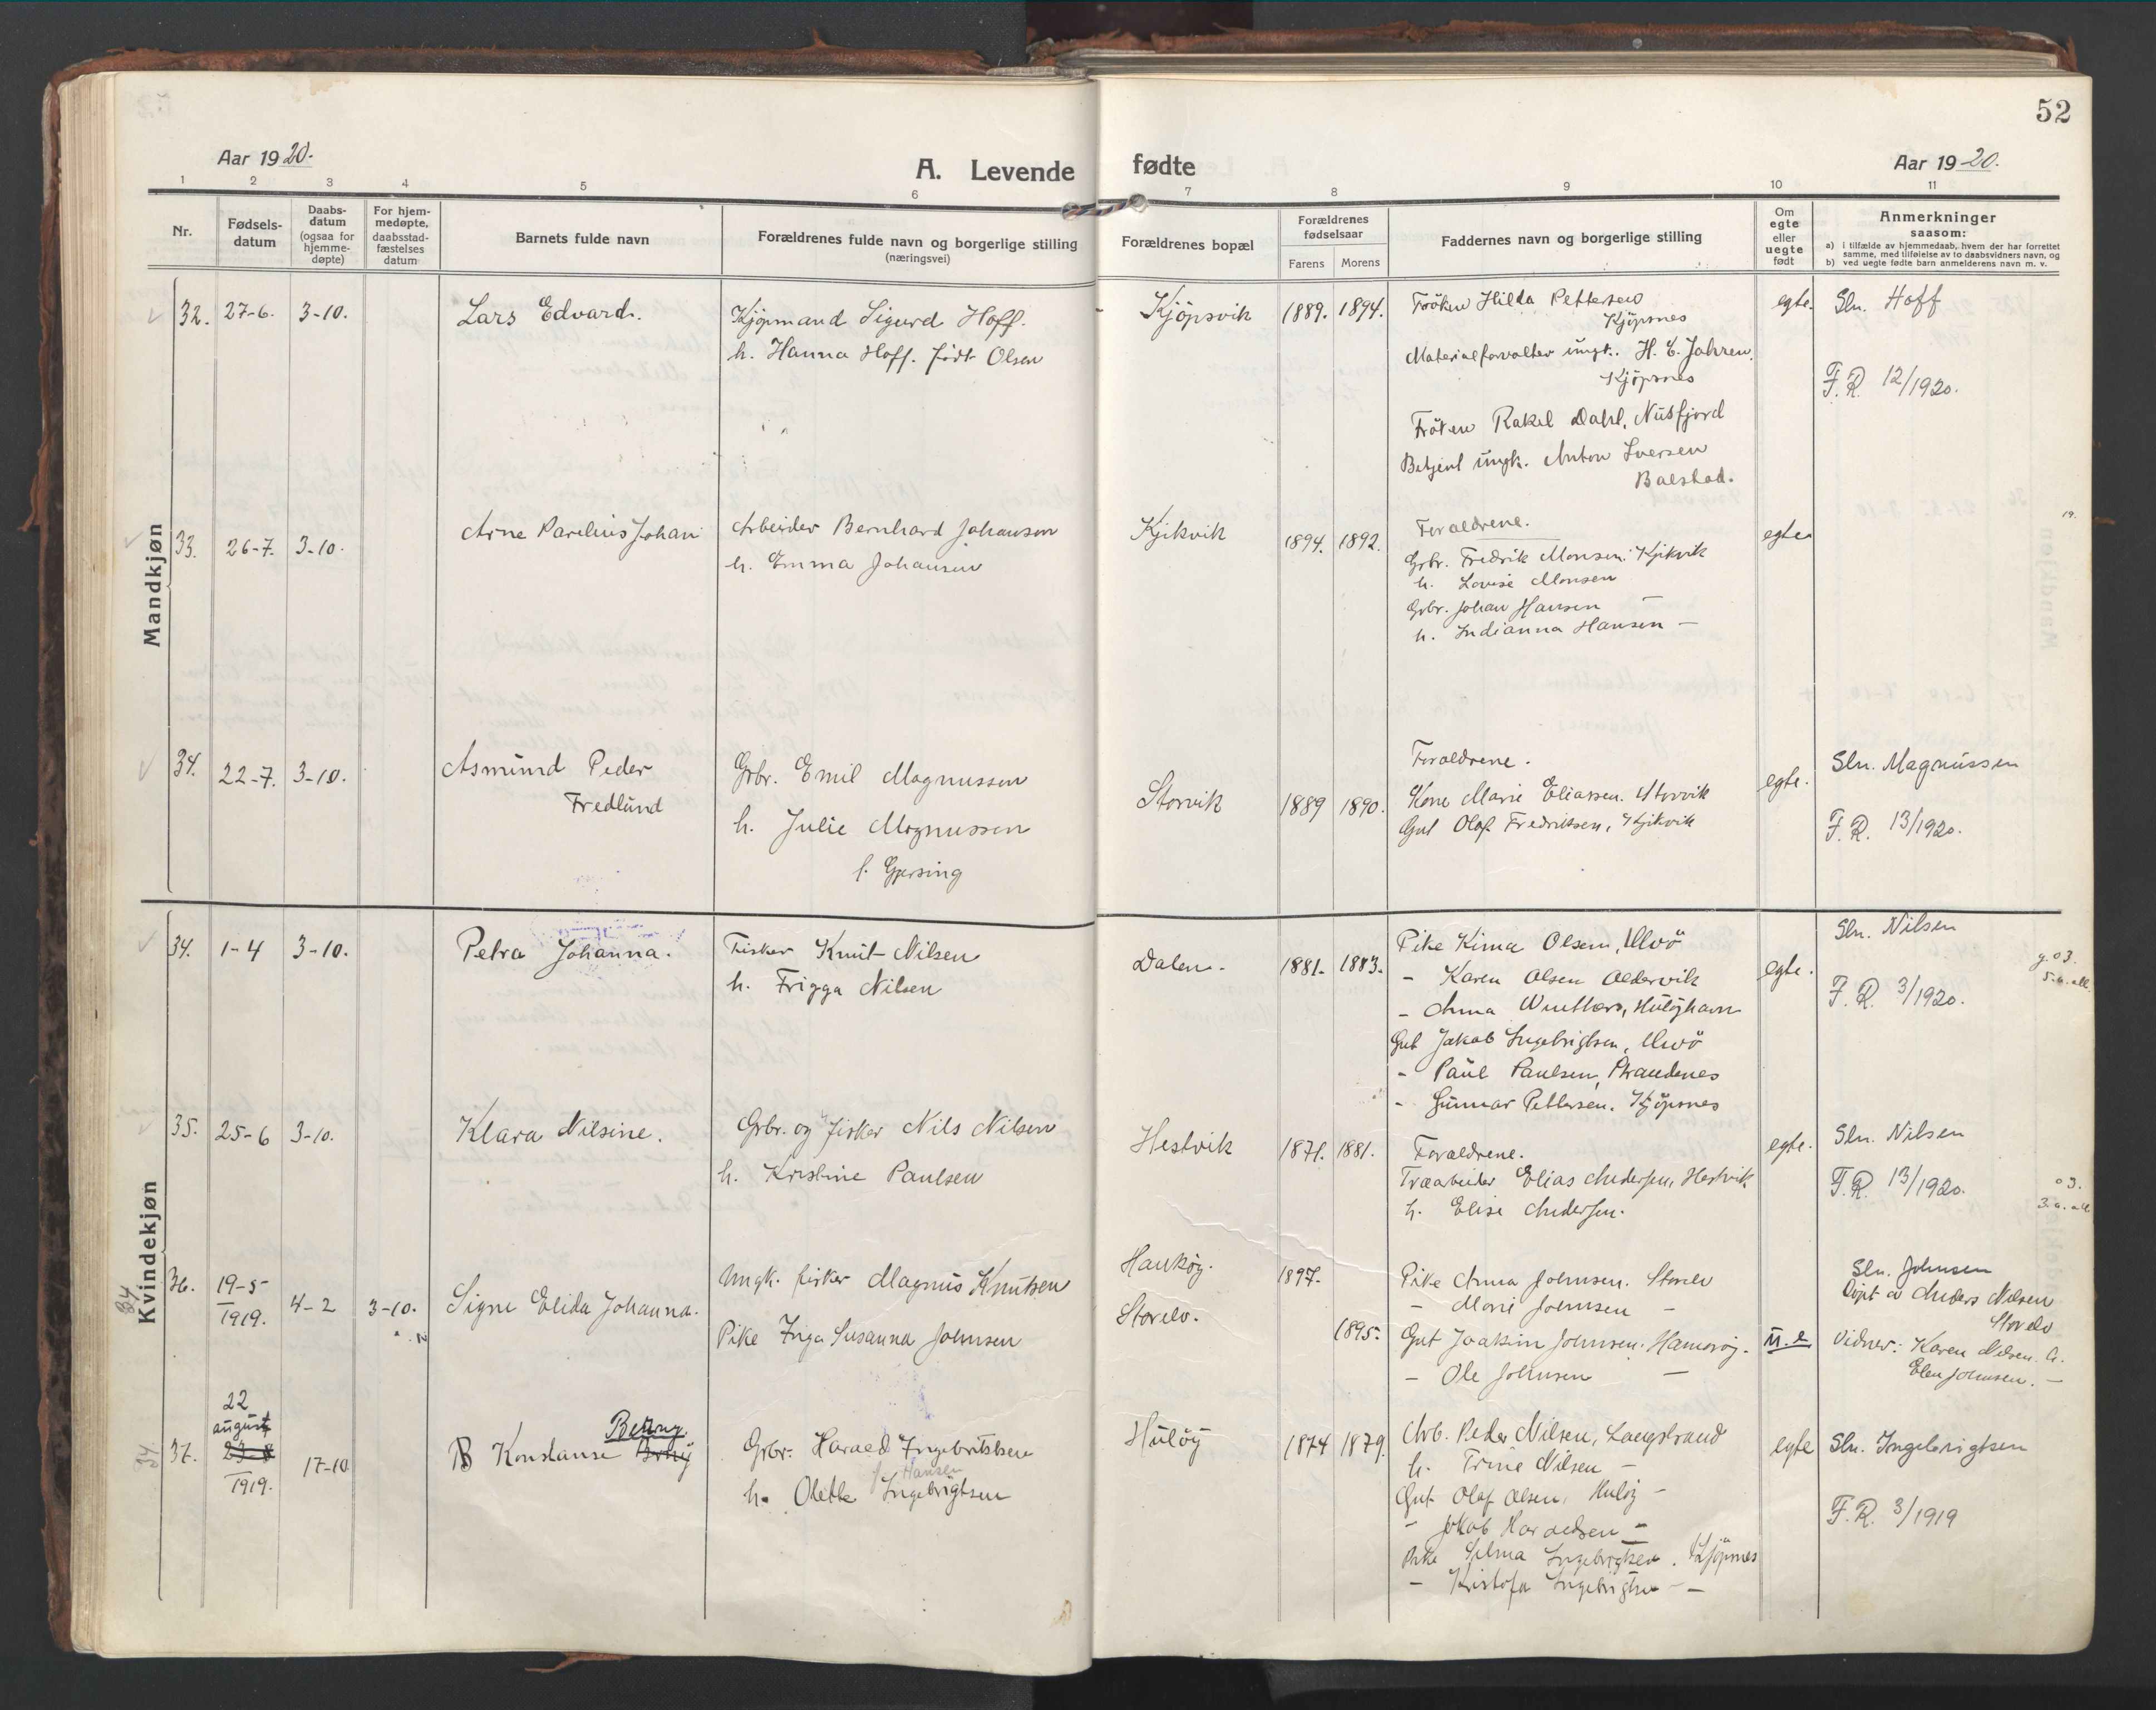 52
Aar 1920.
A. Levende fødte
Aar 1920.
1 2 3 4 5 6 7 8 9 10 11
Nr.
Fødsels-
datum
Daabs-
datum
(ogsaa for
hjemme-
døpte)
For hjem-
medøpte,
daabsstad-
fæstelses
datum
Barnets fulde navn
Forældrenes fulde navn og borgerlige stilling
(næringsvei)
Forældrenes bopæl
Forældrenes
fødselsaar
Farens Morens
Faddernes navn og borgerlige stilling
Om
egte
eller
uegte
født
Anmerkninger
saasom:
a) i tilfælde av hjemmedaab, hvem der har forrettet
samme, med tilføielse av to daabsvidners navn, og
b) ved uegte fødte barn anmelderens navn m. v.
Mandkjøn
32. 27-6. 3-10.
Lars Edvard.
Kjøpmand Sigurd Hoff.
h. Hanna Hoff. født Olsen
Kjöpsvik
1889. 1894.
Fröken Hilda Pettersen
Kjöpsnes
Materialforvalter ungk. H. E. Jahren.
Kjöpsnes
Fröken Rakel Dahl, Nusfjord
Betjent ungk. Anton Iversen
Balstad.
egte.
Sln. Hoff
F. R. 12/1920.
33. 26-7. 3-10.
Arne Parelius Johan
Arbeider Bernhard Johansen
h. Emma Johansen
Kjikvik
1894. 1892.
Foraldrene.
Grbr. Fredrik Monsen. Kjikvik
h. Lovise Monsen
Grbr. Johan Hansen —
h. Indianna Hansen —
egte
19.
34. 22-7. 3-10.
Asmund Peder
Fredlund
Grbr. Emil Magnussen
h. Julie Magnussen
f. Gjersing
Storvik
1889 1890.
Foraldrene.
Kone Marie Eliassen. Storvik
Gut Olaf Fredriksen, Kjikvik
egte.
Sln. Magnussen
F. R. 13/1920.
Kvindekjøn
34
34. 1-4 3-10.
Petra Johanna.
Fisker Knut Nilsen
h. Frigga Nilsen
Dalen.
1881. 1883.
Pike Kima Olsen, Ulvö
- Karen Olsen Oldervik
- Anna Hulöyhavn
Gut Jakob Ingebrigtsen, Ulvö
- Paul Paulsen,
- Gunnar Pettersen. Kjöpsnes
egte.
Sln. Nilsen
F. R. 3/1920.
35. 25-6 3-10.
Klara Nilsine.
Grbr. og fisker Nils Nilsen
h. Kristine Paulsen
Hestvik
1871. 1881.
Foraldrene.
Træarbeider Elias Andersen, Hestvik
h. Elise Andersen.
egte.
Sln. Nilsen
F. R. 13/1920.
36. 19-5
1919. 4-2 3-10.
Signe Elida Johanna.
Ungk. fisker Magnus Knutsen
Pike Inga Susanna Johnsen
Haukøy.
Storelv.
1897.
1895.
Pike Anna Johnsen. Storelv
- Marie Johnsen —
Gut Joakim Johnsen. Hamarøy.
- Ole Johnsen —
u.e
Sln. Johnsen
Döpt av Anders Nilsen
Storelv
Vidner: Karen Nilsen.
Elen Johnsen. —
34
37. 22
august
23-8
1919. 17-10
Konstanse Bérny
Grbr. Harald Ingebritsen
h. Olette Ingebrigtsen
f. Hansen
Hulöy
1874 1879.
Arb. Peder Nilsen, Langstrand
h. Trine Nilsen —
Gut Olaf Olsen, Huløy —
- Jakob Haraldsen —
Pike Selma Ingebrigtsen. Kjöpsnes
- Kristofa Ingebrigtsen —
egte
Sln. Ingebrigtsen
F. R. 3/1919